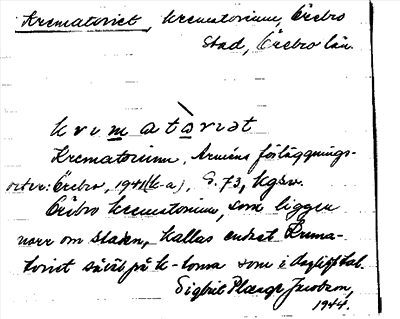 Krematoriet, krematorium, Örebro
stad, Örebro län.
krematòriət
Krematorium, Arméns förläggnings-
orter: Örebro, 1941(k-a), S. 73, kgsv.
Örebro krematorium, som ligger
norr om staden, kallas endast Krema-
toriet såväl på k-torna som i dagligt tal.
Sigbrit Plaenge Jacobson,
1944.